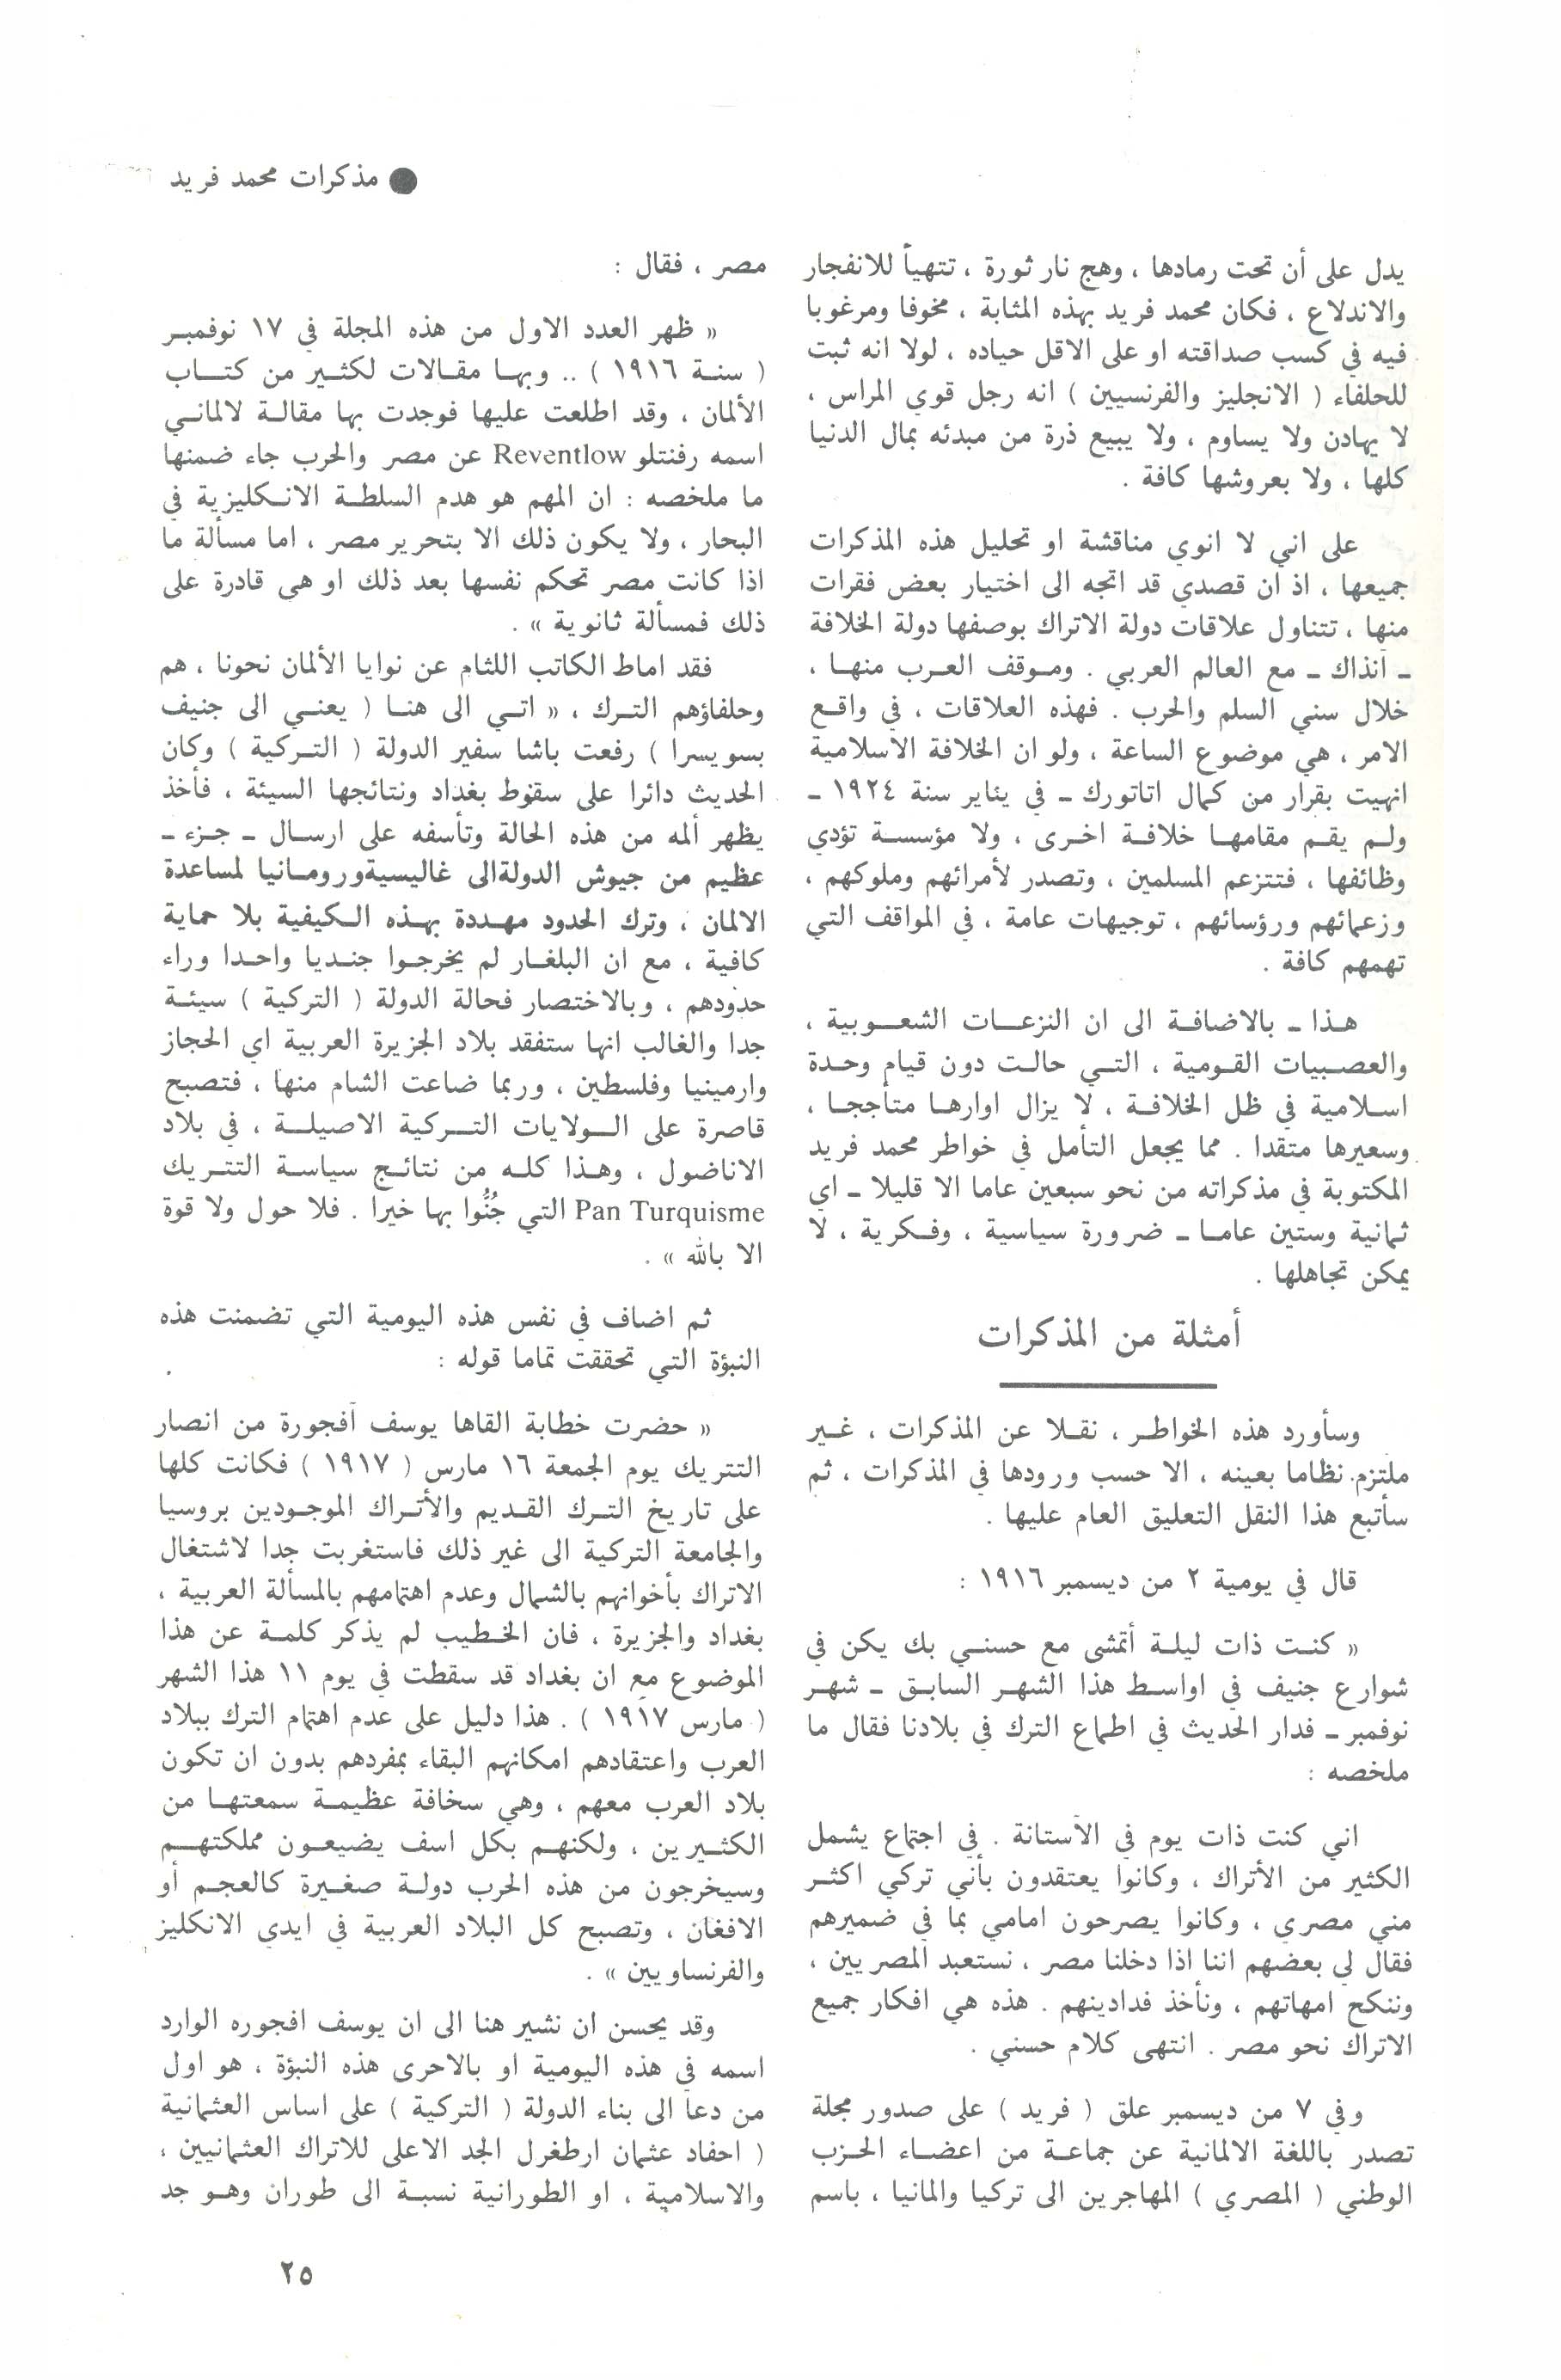 ● مذكرات محمد فريد
يدل على أن تحت رمادها ، وهج نار ثورة ، تتهيأ للانفجار
والاندلاع ، فكان محمد فريد بهذه المثابة ، مخوفا ومرغوبا
فيه في كسب صداقته او على الاقل حياده ، لولا انه ثبت
للحلفاء ( الانجليز والفرنسيين ) انه رجل قوي المراس ،
لا يهادن ولا يساوم ، ولا يبيع ذرة من مبدئه بمال الدنيا
كلها ، ولا بعروشها كافة .
على اني لا انوي مناقشة او تحليل هذه المذكرات
جميعها ، اذ ان قصدي قد اتجه الى اختيار بعض فقرات
منها ، تتناول علاقات دولة الاتراك بوصفها دولة الخلافة
ـ آنذاك ـ مع العالم العربي . وموقف العرب منها ،
خلال سني السلم والحرب . فهذه العلاقات ، في واقع
الامر ، هي موضوع الساعة ، ولو ان الخلافة الاسلامية
انهيت بقرار من كمال اتاتورك ـ في يناير سنة ١٩٢٤ ـ
ولم يقم مقامها خلافة اخرى ، ولا مؤسسة تؤدي
وظائفها ، فتتزعم المسلمين ، وتصدر لأمرائهم وملوكهم ،
وزعمائهم ورؤسائهم ، توجيهات عامة ، في المواقف التي
تهمهم كافة .
هذا ـ بالاضافة الى ان النزعات الشعوبية ،
والعصبيات القومية ، التي حالت دون قيام وحدة
اسلامية في ظل الخلافة ، لا يزال اوارها متأججا ،
وسعيرها متقدا . مما يجعل التأمل في خواطر محمد فريد
المكتوبة في مذكراته من نحو سبعين عاما الا قليلا ـ اي
ثمانية وستين عاما ـ ضرورة سياسية ، وفكرية ، لا
يمكن تجاهلها .
أمثلة من المذكرات
وسأورد هذه الخواطر ، نقلا عن المذكرات ، غير
ملتزم نظاما بعينه ، الا حسب ورودها في المذكرات ، ثم
سأتبع هذا النقل التعليق العام عليها .
قال في يومية ٢ من ديسمبر ١٩١٦ :
« كنت ذات ليلة أتمشى مع حسني بك يكن في
شوارع جنيف في اواسط هذا الشهر السابق ـ شهر
نوفمبر ـ فدار الحديث في اطماع الترك في بلادنا فقال ما
ملخصه :
اني كنت ذات يوم في الآستانة . في اجتماع يشمل
الكثير من الأتراك ، وكانوا يعتقدون بأني تركي اكثر
مني مصري ، وكانوا يصرحون امامي بما في ضميرهم
فقال لي بعضهم اننا اذا دخلنا مصر ، نستعبد المصريين ،
وننكح امهاتهم ، ونأخذ فدادينهم . هذه هي افكار جميع
الاتراك نحو مصر . انتهى كلام حسني .
وفي ٧ من ديسمبر علق ( فريد ) على صدور مجلة
تصدر باللغة الالمانية عن جماعة من اعضاء الحزب
الوطني ( المصري ) المهاجرين الى تركيا والمانيا ، باسم
مصر ، فقال :
« ظهر العدد الاول من هذه المجلة في ١٧ نوفمبر
( سنة ١٩١٦ ) .. وبها مقالات لكثير من كتاب
الألمان ، وقد اطلعت عليها فوجدت بها مقالة لالماني
اسمه رفنتلو Reventlow عن مصر والحرب جاء ضمنها
ما ملخصه : ان المهم هو هدم السلطة الانكليزية في
البحار ، ولا يكون ذلك الا بتحرير مصر ، اما مسألة ما
اذا كانت مصر تحكم نفسها بعد ذلك او هي قادرة على
ذلك فمسألة ثانوية » .
فقد اماط الكاتب اللثام عن نوايا الألمان نحونا ، هم
وحلفاؤهم الترك ، « اتي الى هنا ( يعني الى جنيف
بسويسرا ) رفعت باشا سفير الدولة ( التركية ) وكان
الحديث دائرا على سقوط بغداد ونتائجها السيئة ، فأخذ
يظهر ألمه من هذه الحالة وتأسفه على ارسال ـ جزء ـ
عظيم من جيوش الدولةالى غاليسيةورومانيا لمساعدة
الالمان ، وترك الحدود مهددة بهذه الكيفية بلا حماية
كافية ، مع ان البلغار لم يخرجوا جنديا واحدا وراء
حدودهم ، وبالاختصار فحالة الدولة ( التركية ) سيئة
جدا والغالب انها ستفقد بلاد الجزيرة العربية اي الحجاز
وارمينيا وفلسطين ، وربما ضاعت الشام منها ، فتصبح
قاصرة على الولايات التركية الاصيلة ، في بلاد
الاناضول ، وهذا كله من نتائج سياسة التتريك
Pan Turquisme التي جُنُّوا بها خيرا . فلا حول ولا قوة
الا بالله » .
ثم اضاف في نفس هذه اليومية التي تضمنت هذه
النبؤة التي تحققت تماما قوله :
« حضرت خطابة القاها يوسف آفجورة من انصار
التتريك يوم الجمعة ١٦ مارس ( ١٩١٧ ) فكانت كلها
على تاريخ الترك القديم والأتراك الموجودين بروسيا
والجامعة التركية الى غير ذلك فاستغربت جدا لاشتغال
الاتراك بأخوانهم بالشمال وعدم اهتمامهم بالمسألة العربية ،
بغداد والجزيرة ، فان الخطيب لم يذكر كلمة عن هذا
الموضوع مع ان بغداد قد سقطت في يوم ١١ هذا الشهر
( مارس ١٩١٧ ) . هذا دليل على عدم اهتمام الترك ببلاد
العرب واعتقادهم امكانهم البقاء بمفردهم بدون ان تكون
بلاد العرب معهم ، وهي سخافة عظيمة سمعتها من
الكثيرين ، ولكنهم بكل اسف يضيعون مملكتهم
وسيخرجون من هذه الحرب دولة صغيرة كالعجم أو
الافغان ، وتصبح كل البلاد العربية في ايدي الانكليز
والفرنساويين » .
وقد يحسن ان نشير هنا الى ان يوسف افجوره الوارد
اسمه في هذه اليومية او بالاحرى هذه النبؤة ، هو اول
من دعا الى بناء الدولة ( التركية ) على اساس العثمانية
( احفاد عثمان ارطغرل الجد الاعلى للاتراك العثمانيين ،
والاسلامية ، او الطورانية نسبة الى طوران وهو جد
٢٥